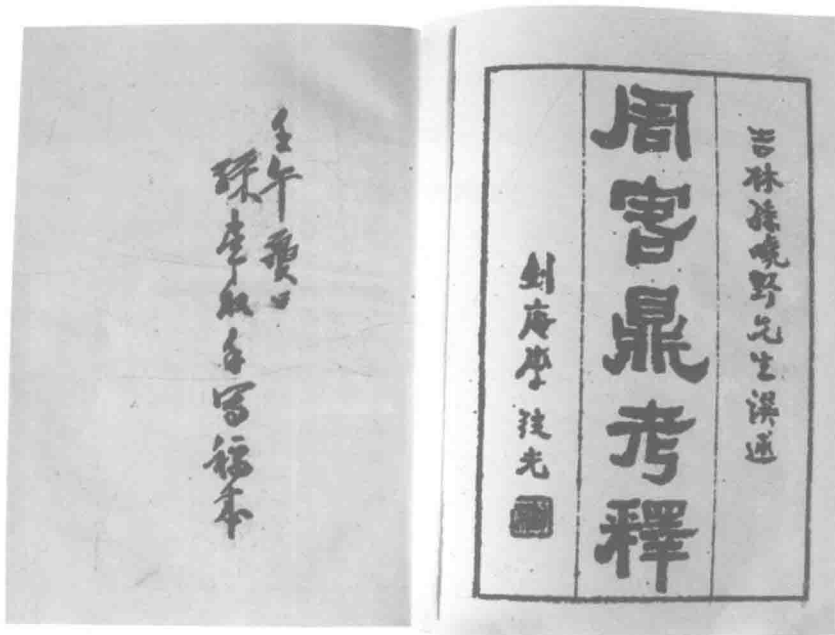 吉林孫曉野先生譔述
周客鼎考釋
庵學
壬午夏日
孫常叙手写稿本